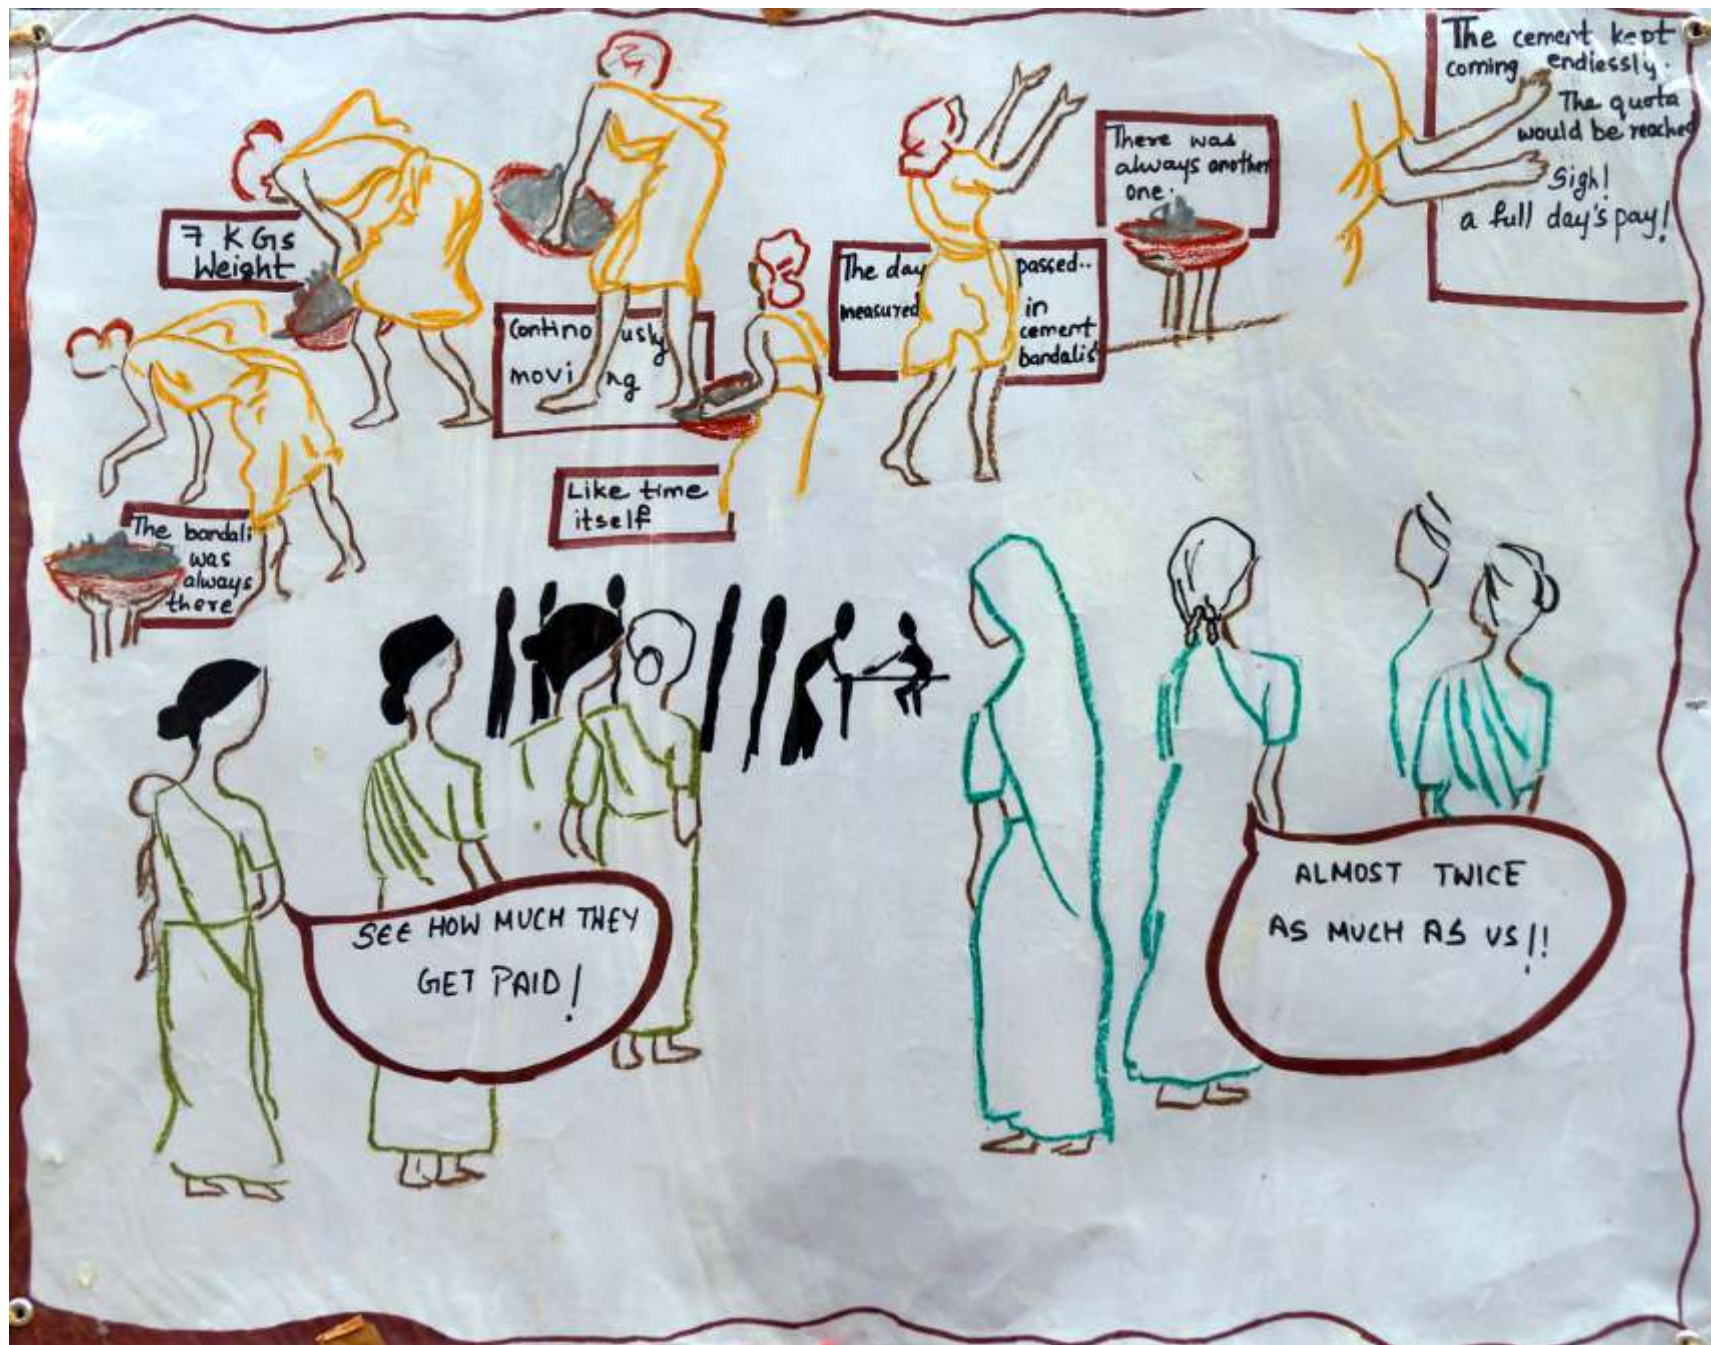 The bandali
was
always
there
7 KGs
Weight
Contino usly
movi ng
Like time
itself
The day passed..
measured in
cement
bandalis
There was
always another
one.
The cement kept
coming endlessly.
The quota
would be reached
Sigh!
a full day's pay!
SEE HOW MUCH THEY
GET PAID!
ALMOST TWICE
AS MUCH AS US!!